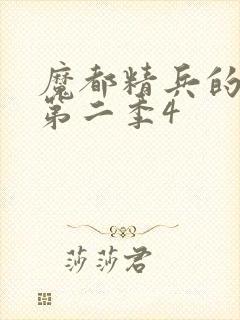 魔都精兵的
第二季4
莎莎君